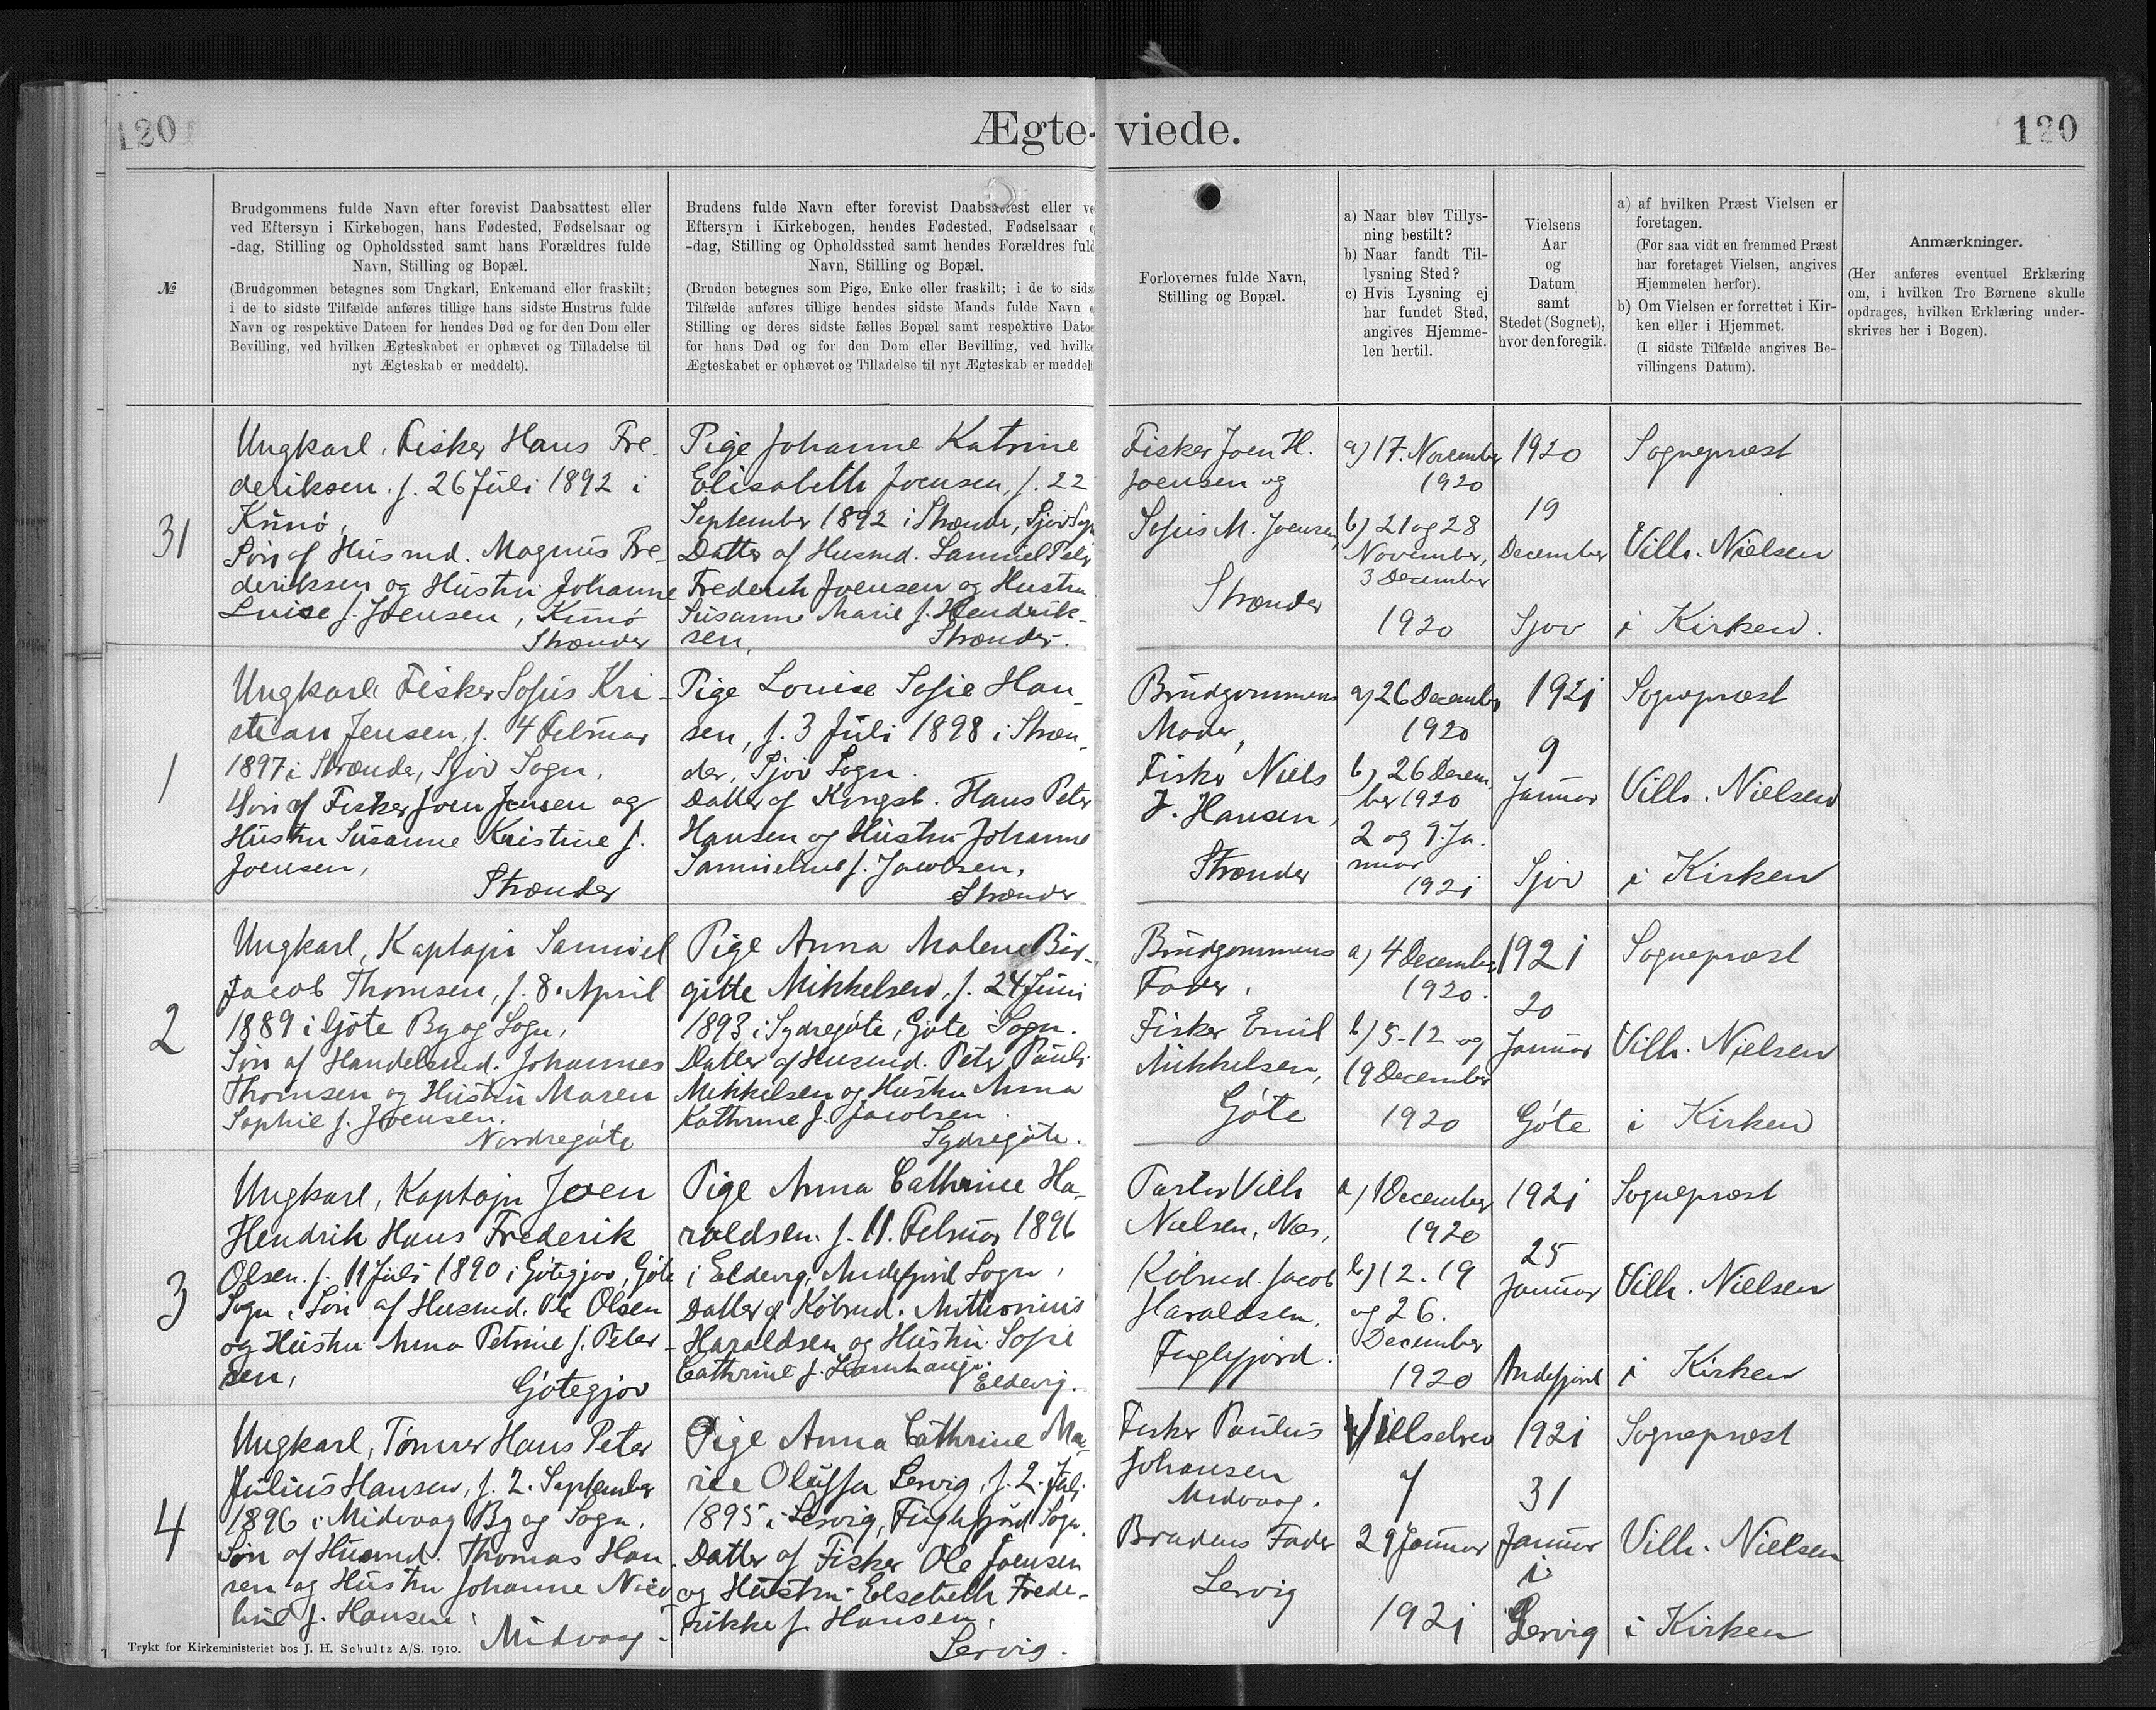 120
Ægte-viede.
120
№
Brudgommens fulde Navn efter forevist Daabsattest eller
ved Eftersyn i Kirkebogen, hans Fødested, Fødselsaar og
-dag, Stilling og Opholdssted samt hans Forældres fulde
Navn, Stilling og Bopæl.
(Brudgommen betegnes som Ungkarl, Enkemand eller fraskilt;
i de to sidste Tilfælde anføres tillige hans sidste Hustrus fulde
Navn og respektive Datoen for hendes Død og for den Dom eller
Bevilling, ved hvilken Ægteskabet er ophævet og Tilladelse til
nyt Ægteskab er meddelt).
Brudens fulde Navn efter forevist Daabsattest eller ve
Eftersyn i Kirkebogen, hendes Fødested, Fødselsaar o
-dag, Stilling og Opholdssted samt hendes Forældres fuld
Navn, Stilling og Bopæl.
(Bruden betegnes som Pige, Enke eller fraskilt; i de to sidst
Tilfælde anføres tillige hendes sidste Mands fulde Navn
Stilling og deres sidste fælles Bopæl samt respektive Datoe
for hans Død og for den Dom eller Bevilling, ved hvilke
Ægteskabet er ophævet og Tilladelse til nyt Ægteskab er meddelt
Forlovernes fulde Navn,
Stilling og Bopæl.
a) Naar blev Tillys-
ning bestilt?
b) Naar fandt Til-
lysning Sted?
c) Hvis Lysning ej
har fundet Sted,
angives Hjemme-
len hertil.
Vielsens
Aar
og
Datum
samt
Stedet (Sognet),
hvor den foregik.
a) af hvilken Præst Vielsen er
foretagen.
(For saa vidt en fremmed Præst
har foretaget Vielsen, angives
Hjemmelen herfor).
b) Om Vielsen er forrettet i Kir-
ken eller i Hjemmet.
(I sidste Tilfælde angives Be-
villingens Datum).
Anmærkninger.
(Her anføres eventuel Erklæring
om, i hvilken Tro Børnene skulle
opdrages, hvilken Erklæring under-
skrives her i Bogen).
31
Ungkarl, Fisker Hans Fre-
deriksen, f. 26 Juli 1892 i
Kunö,
Søn af Husmd. Magnus Fre-
deriksen og Hustru Johanne
Luise f. Joensen, Kunö
Strænder
Pige Johanne Katrine
Elisabeth Joensen, f. 22
September 1892 i Strænder, Sjov Sogn
Datter af Husmd. Samuel Peter
Frederik Joensen og Hustru
Susanne Marie f. Hendrik-
sen, Strænder.
Fisker Joen H.
Joensen og
Sofus M. Joensen,
Strænder
a) 17. November
1920
b) 21 og 28
November,
3 December
1920
1920
19
December
Sjov
Sognepræst
Vilh. Nielsen
i Kirken.
1
Ungkarl Fisker Sofus Kri-
stian Jensen, f. 4 Februar
1897 i Strænder, Sjov Sogn,
Søn af Fisker Joen Jensen og
Hustru Susanne Kristine f.
Joensen,
Strænder
Pige Louise Sofie Han-
sen, f. 3 Juli 1898 i Stræn-
der, Sjov Sogn.
Datter af Kongsb. Hans Peter
Hansen og Hustru Johanne
Samueline f. Jacobsen,
Strænder
Brudgommens
Moder,
Fisker Niels
J. Hansen,
Strænder
a) 26 December
1920
b) 26 Decem-
ber 1920
2 og 9. Ja-
nuar
1921
1921
9
Januar
Sjov
Sognepræst
Vilh. Nielsen
i Kirken
2
Ungkarl, Kaptajn Samuel
Jacob Thomsen, f. 8. April
1889 i Göte By og Sogn,
Søn af Handelsmd. Johannes
Thomsen og Hustru Maren
Sophie f. Joensen.
Nordregöte
Pige Anna Malene Bir-
gitte Mikkelsen, f. 24 Juni
1893 i Sydregöte, Göte Sogn.
Datter af Husmd. Peter Pauli
Mikkelsen og Hustru Anna
Kathrine f. Jacobsen.
Sydregöte.
Brudgommens
Fader,
Fisker Emil
Mikkelsen,
Göte
a) 4 December
1920.
b) 5-12 og
19 December
1920
1921
20
Januar
Göte
Sognepræst
Vilh. Nielsen
i Kirken
3
Ungkarl, Kaptajn Joen
Hendrik Hans Frederik
Olsen, f. 11 Juli 1890 i Götegjov, Göte
Sogn, Søn af Husmd. Ole Olsen
og Hustru Anna Petrine f. Peter-
sen,
Götegjov
Pige Anna Cathrine Ha-
raldsen, f. 11. Februar 1896
i Eldevig, Andefjord Sogn,
Datter af Købmd. Anthonius
Haraldsen og Hustru Sofie
Cathrine f. Hamhauge.
Eldevig.
Pastor Vilh
Nielsen, Næs,
Købmd. Jacob
Haraldsen,
Fuglefjord.
a) 1 December
1920
b) 12. 19
og 26.
December
1920
1921
25
Januar
Andefjord
Sognepræst
Vilh. Nielsen
i Kirken
4
Ungkarl, Tömrer Hans Peter
Julius Hansen, f. 2. September
1896 i Midvaag By og Sogn,
Søn af Husmd. Thomas Han-
sen og Hustru Johanne Nico-
line f. Hansen,
Midvaag.
Pige Anna Cathrine Ma-
rie Olussa Lervig, f. 2. Juli
1895 i Lervig, Fuglefjord Sogn.
Datter af Fisker Ole Joensen
og Hustru Elsebeth Frede-
rikke f. Hansen,
Lervig.
Fisker Paulus
Johansen
Midvaag.
Brudens Fader
Lervig
Vielsesbrev
af
29 Januar
1921
1921
31
Januar
i
Lervig
Sognepræst
Vilh. Nielsen
i Kirken
Trykt for Kirkeministeriet hos J. H. Schultz A/S. 1910.